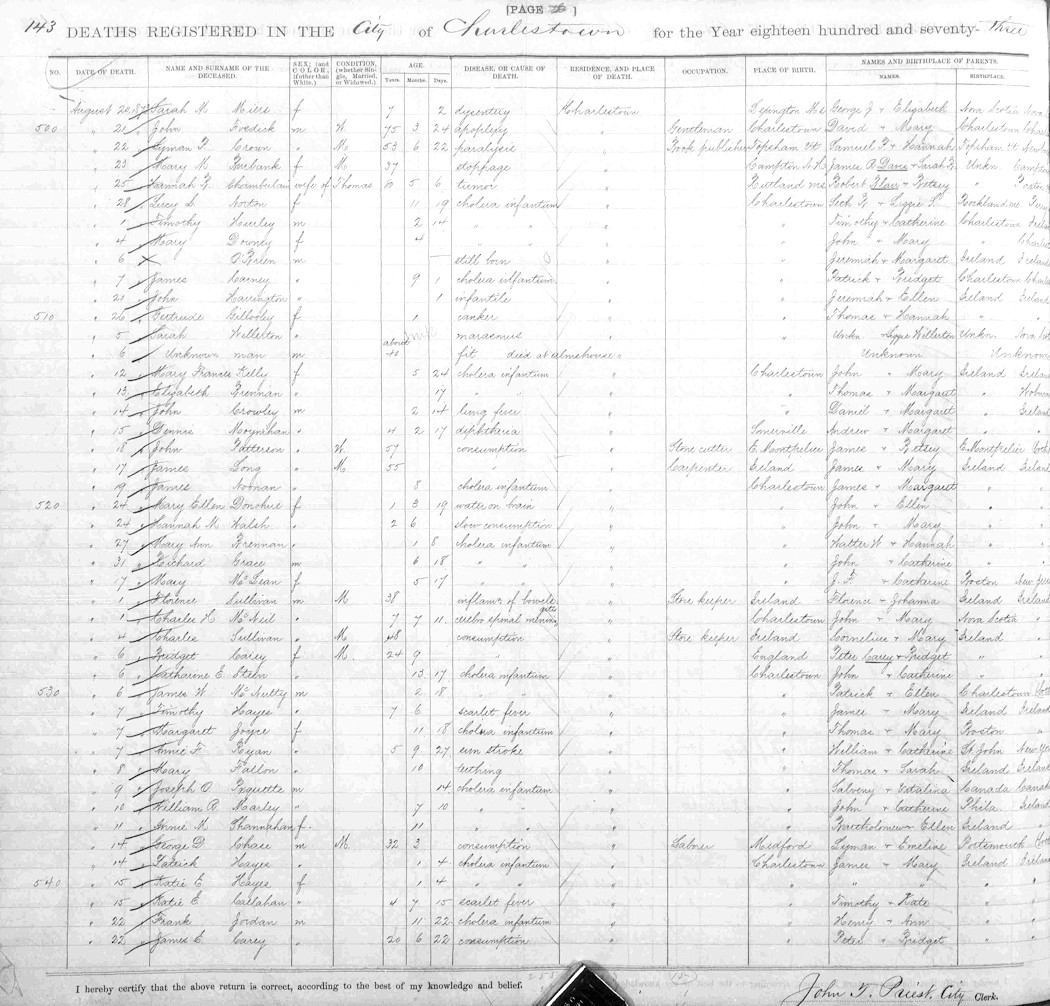 [PAGE ]
143 DEATHS REGISTERED IN THE City of Charlestown for the Year eighteen hundred and seventy-three
NO. DATE OF DEATH. NAME AND SURNAME OF THE DECEASED. SEX; (and COLOR, if other than White.) CONDITION, (whether Single, Married, or Widowed.) AGE. Years. Months. Days. DISEASE, OR CAUSE OF DEATH. RESIDENCE, AND PLACE OF DEATH. OCCUPATION. PLACE OF BIRTH. NAMES AND BIRTHPLACE OF PARENTS. NAMES. BIRTHPLACE.
August 20 Sarah M. f 7 2 dysentery Charlestown George & Elizabeth Nova Scotia
500 " 21 John m W. 75 3 24 apoplexy " Gentleman Charlestown David & Mary Charlestown
" 22 Lyman Crown " M 53 6 22 paralysis " Book publisher Topsham Vt Samuel & Hannah Topsham Vt
" 23 Mary N. Burbank f M 37 stoppage " Campton N.H. James & Sarah Unkn.
" 25 Hannah Chamberlain wife of Thomas 5 6 tumor " Robert Blair & Betsey "
" 28 Lucy S. Norton f 11 19 cholera infantum " Charlestown Seth & Lizzie Rockland me
" 1 Timothy Hurley m 2 14 " " " " Timothy & Catherine Charlestown
" 4 Mary Downey f 4 " " " " John & Mary "
" 6 O'Brien m still born " " Jeremiah & Margaret Ireland
" 7 James Carney " 9 1 cholera infantum " " Patrick & Bridget Charlestown
" 21 John Harrington " 1 infantile " " Jeremiah & Ellen Ireland
510 " 26 Gertrude Gillooly f 1 canker " " Thomas & Hannah "
" 5 Sarah Willerton " marasmus " " Unkn Lizzie Willerton Unkn.
" 6 Unknown man m about 40 fit died at almshouse " Unknown Unknown
" 12 Mary Frances Kelly f 5 24 cholera infantum " Charlestown John & Mary Ireland
" 13 Elizabeth Brennan " 17 " " " " Thomas & Margaret "
" 14 John Crowley m 2 14 lung fever " " Daniel & Margaret "
" 15 Dennis Moynahan " 4 2 17 diphtheria " Somerville Andrew & Margaret "
" 18 John Patterson " W. 57 consumption " Stone cutter E. Montpelier James & Betsey E. Montpelier
" 17 James Long " M 55 " " Carpenter Ireland James & Mary Ireland
" 19 James Noonan " 8 cholera infantum " Charlestown James & Margaret "
520 " 24 Mary Ellen Donohue f 1 3 19 water on brain " " John & Ellen "
" 24 Hannah M. Walsh " 2 6 slow consumption " " John & Mary "
" 27 Mary Ann Brennan " 1 8 cholera infantum " " Walter W & Hannah "
" 31 Richard Grace m 6 18 " " " " John & Catherine "
" 17 Mary McLean f 5 17 " " " " J. & Catherine Boston
" 1 Florence Sullivan m M 38 inflam. of bowels " Store keeper Ireland Florence & Johanna Ireland
" 1 Charles H. McNeil " 7 7 11 cerebro spinal " Charlestown John & Mary Nova Scotia
" 4 Charles Sullivan " M 48 consumption " Store keeper Ireland Cornelius & Mary Ireland
" 6 Bridget Carey f M. 24 9 " " England Peter Carey & Bridget "
" 6 Catharine E. Steen " 13 17 cholera infantum " Charlestown John & Catherine "
530 " 6 James W. McNulty m 2 18 " " " " Patrick & Ellen Charlestown
" 7 Timothy Hayes " 7 6 scarlet fever " " James & Mary Ireland
" 7 Margaret Joyce f 11 18 cholera infantum " " Thomas & Mary Boston
" 7 Annie F. Ryan " 5 9 27 sun stroke " " William & Catharine St. John
" 8 Mary Fallon " 10 teething " " Thomas & Sarah Ireland
" 9 Joseph O. m 14 cholera infantum " " Canada
" 10 William R. Marley " 7 10 " " " " John & Catherine Phila.
" 11 Annie M. Shannahan f 11 " " " " Bartholomew Ellen Ireland
" 14 George D. Chase m M. 32 3 consumption " Laborer Medford Lyman & Emeline Portsmouth
" 14 Patrick Hayes " 1 4 cholera infantum " Charlestown James & Mary Ireland
540 " 15 Katie E. Hayes f 1 4 " " " " " " "
" 15 Katie E. Callahan " 4 7 15 scarlet fever " " Timothy & Kate "
" 22 Frank Jordan m 11 22 cholera infantum " " Henry & Ann "
" 22 James E. Carey " 20 6 22 consumption " " Peter & Bridget "
I hereby certify that the above return is correct, according to the best of my knowledge and belief.
John T. Priest, City Clerk.